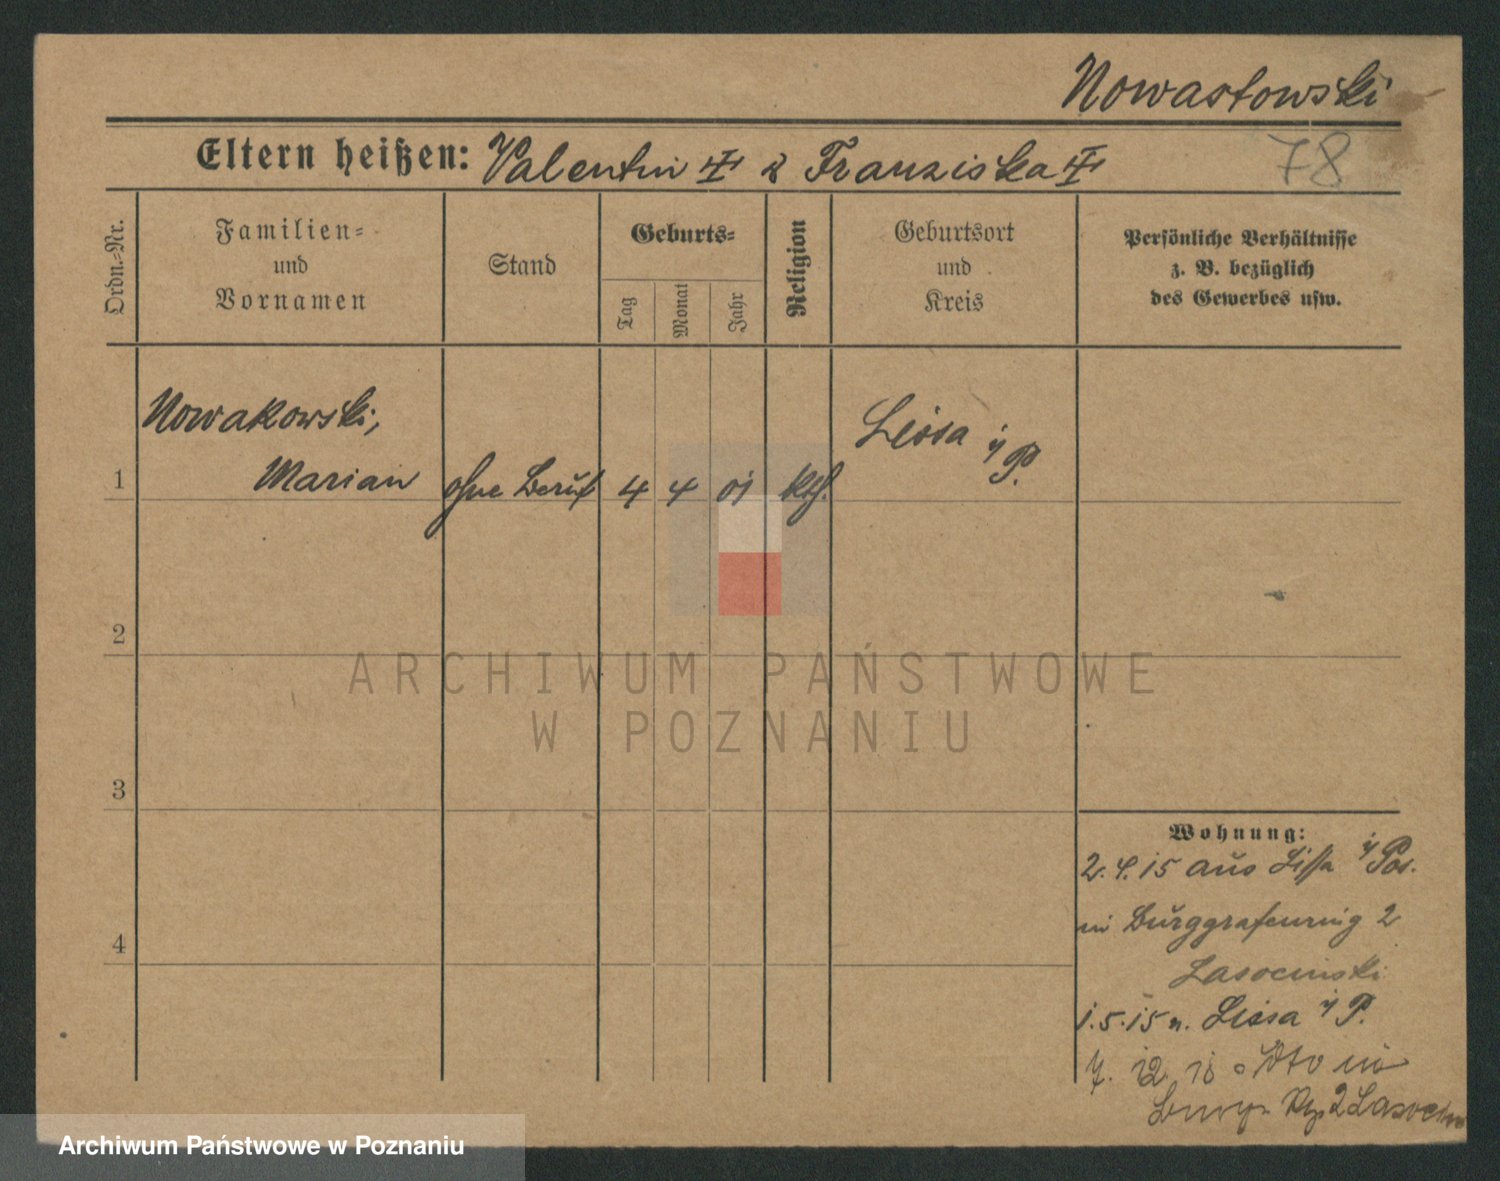 Nowastowski
Eltern heißen: Valentin & Franziska
78
Ordn.-Nr.
Familien-
und
Vornamen
Stand
Geburts-
Tag
Monat
Jahr
Religion
Geburtsort
und
Kreis
Persönliche Verhältnisse
z. B. bezüglich
des Gewerbes usw.
Nowakowski,
1 Marian ohne Beruf 4 4 01 kth. Lissa i/P.
2
3
4
Wohnung:
2.4.15 aus Lissa i/Pos.
in Burggrafenring 2
Lasocinski
1.5.15 n. Lissa i/P.
7. 12. 2 Lasocin
ARCHIWUM PAŃSTWOWE
W POZNANIU
Archiwum Państwowe w Poznaniu